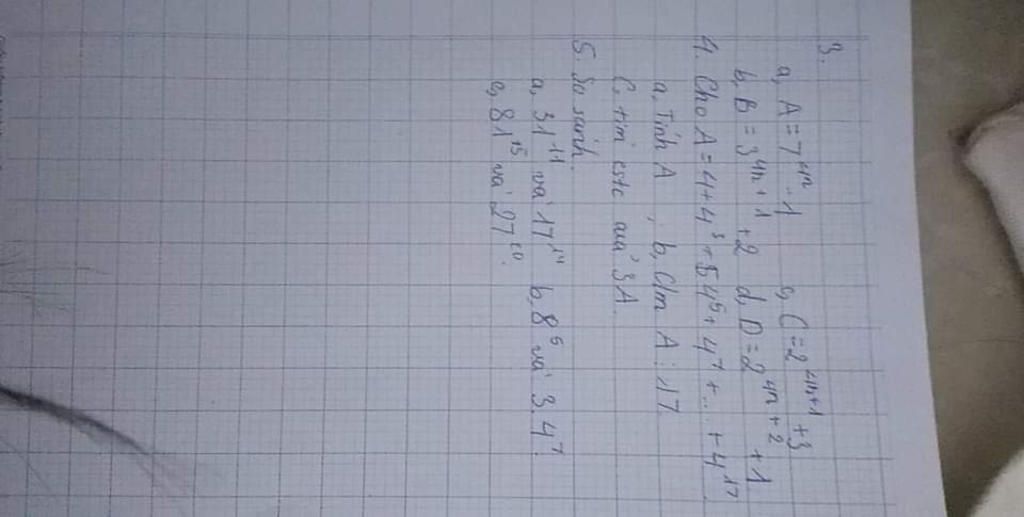 3.
a, A = 7⁴ⁿ - 1 c, C = 2⁴ⁿ⁺¹ + 3
b, B = 3⁴ⁿ⁺¹ + 2 d, D = 2⁴ⁿ⁺² + 1
4. Cho A = 4 + 4³ + 4⁵ + 4⁷ + ... + 4¹⁷
a, Tính A , b, C/m A ⋮ 17
C, tìm cstc của 3A.
5. So sánh.
a, 31¹¹ và 17¹⁴ b, 8⁵ và 3.4⁷.
c, 81¹⁵ và 27²⁰.